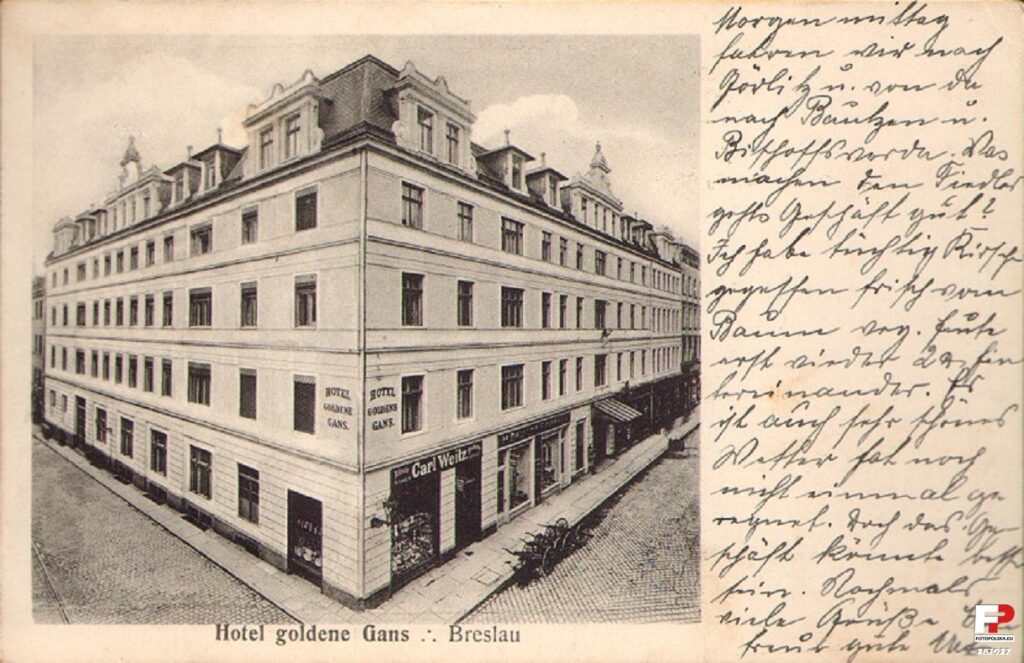 HOTEL
GOLDENE
GANS.
HOTEL
GOLDENE
GANS.
Carl Weitz
Hotel goldene Gans ∴ Breslau
Morgen mittag
fahren wir nach
Görlitz u. von da
nach Bautzen u.
Bischoffswerda. Was
machen den Fiedler
gehts Geschäft gut?
Ich habe tüchtig Kirsch
gegessen frisch vom
Baum weg. Heute
erst wieder 2 ℔ hin
tereinander. Es
ist auch sehr schönes
Wetter hat noch
nicht einmal ge
regnet. Doch das Ge
schäft könnte
sein. Nochmals
viele Grüße
gute
FP
FOTOPOLSKA.EU